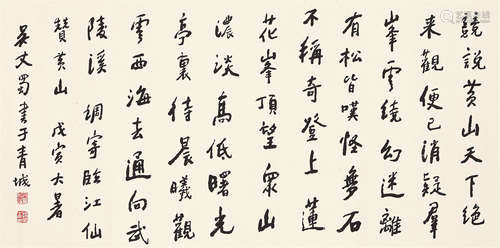 競說黃山天下绝
来觀便已消疑羣
峯雲绕幻迷離
有松皆嘆怪無石
不稱奇登上蓮
花峯頂望衆山
濃淡高低曙光
亭裏待晨曦觀
雲西海去通向武
陵溪 調寄臨江仙
贊黃山 戊寅大暑
吴丈蜀書于青城